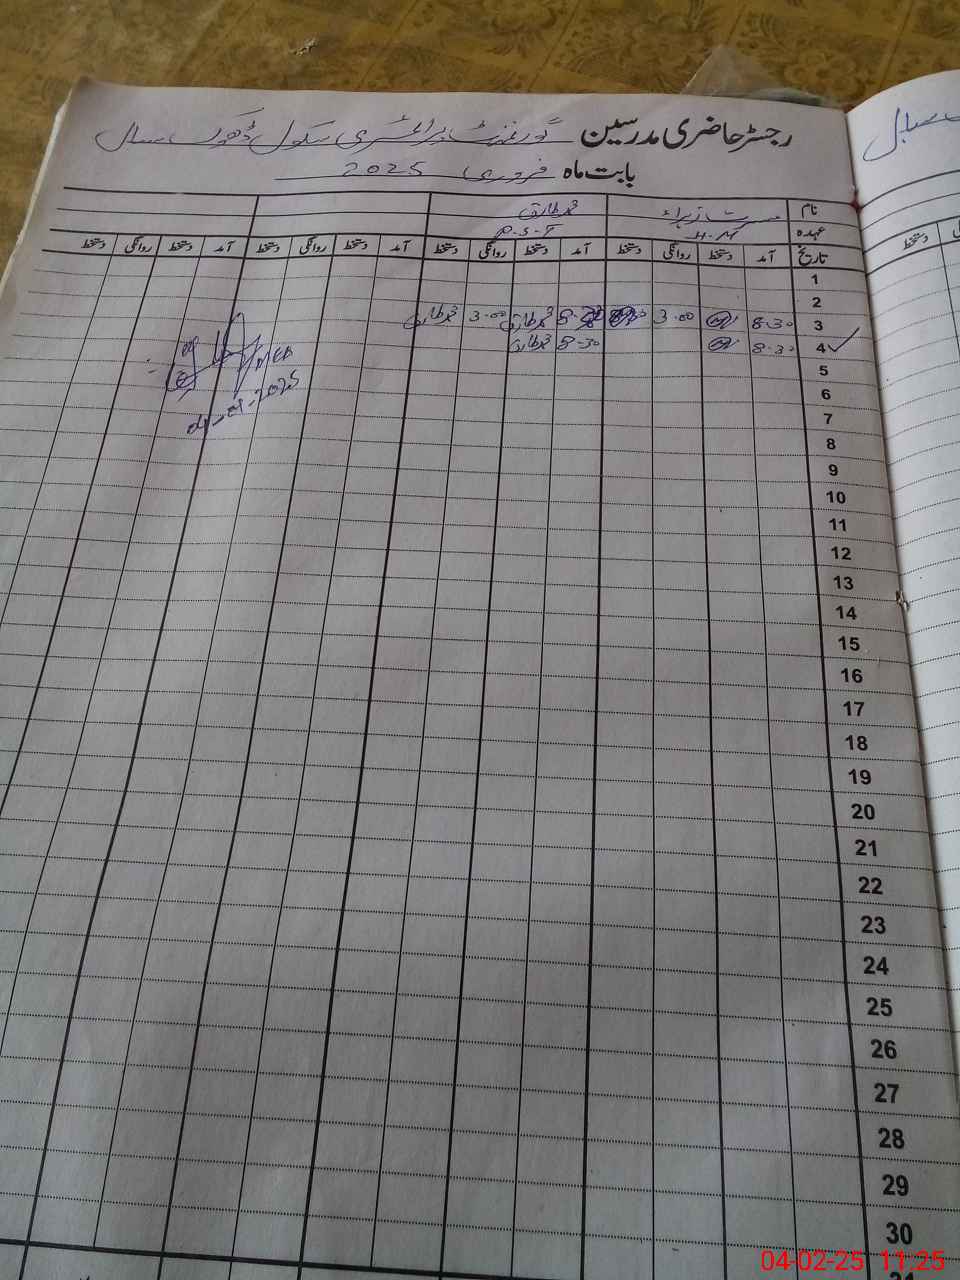 رجسٹر حاضری مدرسین گورنمنٹ پرائمری سکول ڈھوک سیال
بابت ماہ فروری 2025
نام مسرت زہراء محمد طارق
عہدہ H.M P.S.T
تاریخ آمد دستخط روانگی دستخط آمد دستخط روانگی دستخط آمد دستخط روانگی دستخط آمد دستخط روانگی دستخط
1
2
3 8.30 3.00 محمد طارق 3.00 محمد طارق
4 8.30 8.30 محمد طارق
5
6
7
8
9
10
11
12
13
14
15
16
17
18
19
20
21
22
23
24
25
26
27
28
29
30
MEA
04-02-2025
سیال
دستخط
04-02-25 11:25